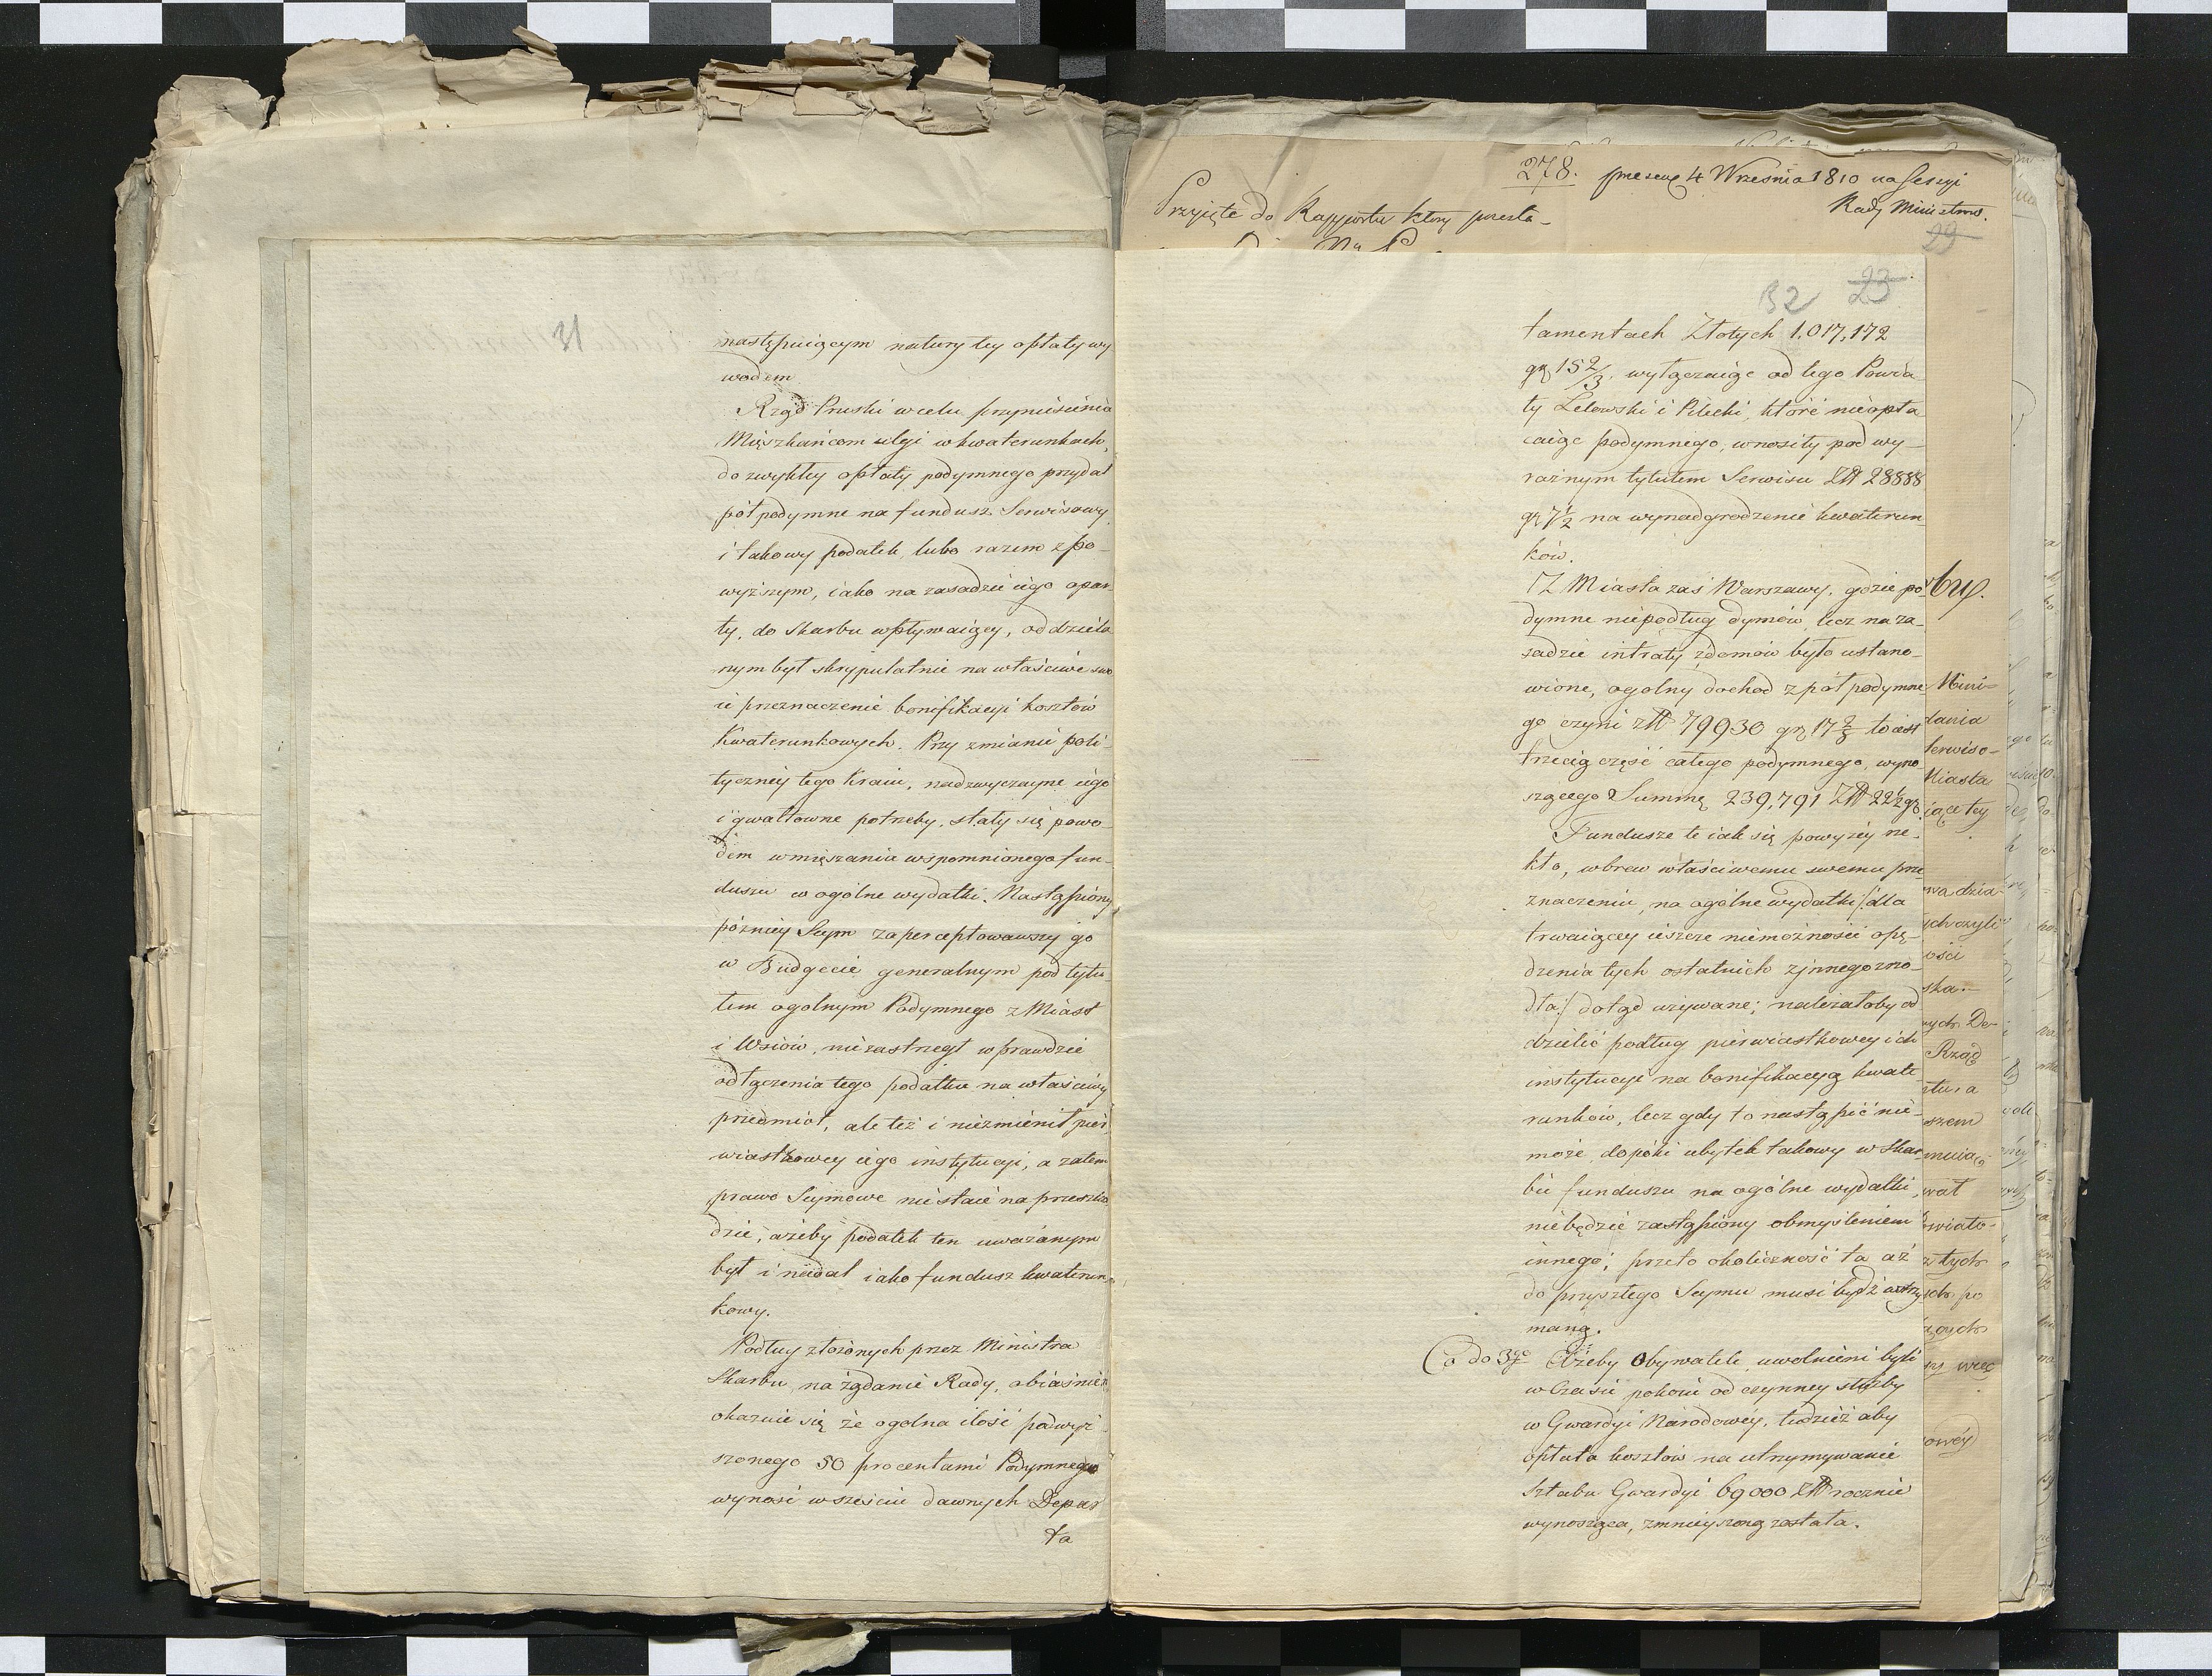 31
następuiącym natury tey opłaty wy
wodem
Rząd Pruski w celu przynieśienia
Mięszkańcom ulgi w kwaterunkach,
do zwykłey opłaty podymnego przydał
pół podymne na fundusz Serwisowy
i takowy podatek, lubo razem z po-
wyższym, iako na zasadzie iego opar-
ty, do Skarbu wpływaiący, oddziela
nym był skrypulatnie na właściwe swo
ie przeznaczenie bonifikacyi kosztów
Kwaterunkowych. Przy zmianie poli-
tyczney tego Kraiu, nadzwyczayne iego
i gwałtowne potrzeby, stały się powo-
dem wmięszania wspomnionego fun-
duszu w ogólne wydatki. Nastąpiony
pózniey Seym zaperceptowawszy go
w Budgecie generalnym pod tytu-
łem ogolnym Podymnego z Miast
i Wsiów, niezastrzegł wprawdzie
odłączenia tego podatku na właściwy
przedmiot, ale też i niezmienił pier-
wiastkowey iego instytucyi, a zatem
prawo Seymowe niestaie na przeszko
dzie, ażeby podatek ten uważanym
był i nadal iako fundusz kwaterun-
kowy.
Podług złożonych przez Ministra
Skarbu, na żądanie Rady, obiaśnień
okazuie się że ogolna ilość podwyż-
szonego 50 procentami Podymnego
wynosi w sześciu dawnych Depar
ta
278. 4 Wrzesnia 1810 na Sessyi
Rady Ministrów.
Przyięte do Rapportu ktory przesła-
29
32 23
tamentach Złotych 1,017,172
gr 15 2/3, wyłączaiąc od tego Powia-
ty Lelowski i Pilecki, które nieopła
caiąc podymnego, wnosiły pod wy-
raźnym tytułem Serwisu Zł 28888
gr 7 1/2 na wynadgrodzenie kwaterun
ków.
Z Miasta zaś Warszawy, gdzie po-
dymne niepodług dymów, lecz na za-
sadzie intraty z domów było ustano-
wione, ogolny dochod z pół podymne
go czyni zł 79930 gr 17 2/3 to iest
trzecią część całego podymnego, wyno-
szącego Summę 239,791 Zł 22 1/2 gr.
Fundusze te iak się powyżey rze-
kło, wbrew właściwemu swemu prze
znaczeniu, na ogólne wydatki /: dla
trwaiącey ieszcze niemożności opę-
dzenia tych ostatnich z innego zró-
dła :/ dotąd używane; należałoby od
dzielić podług pierwiastkowey ich
instytucyi na bonifikacyą kwate-
runków, lecz gdy to nastąpić nie-
może, dopóki ubytek takowy w Skar-
bie funduszu na ogólne wydatki
niebędzie zastąpiony obmyśleniem
innego; przeto okoliczność ta aż
do przyszłego Seymu musi bydź wstrzy
maną.
Co do 3go Ażeby Obywatele uwolnieni byli
w Czasie pokoiu od czynney służby
w Gwardyi Narodowey, tudzież aby
opłata kosztów na utrzymywanie
Sztabu Gwardyi 69000 Zł rocznie
wynosząca, zmnieyszoną została.
Mini-
Miasta
iącetey
Rząd